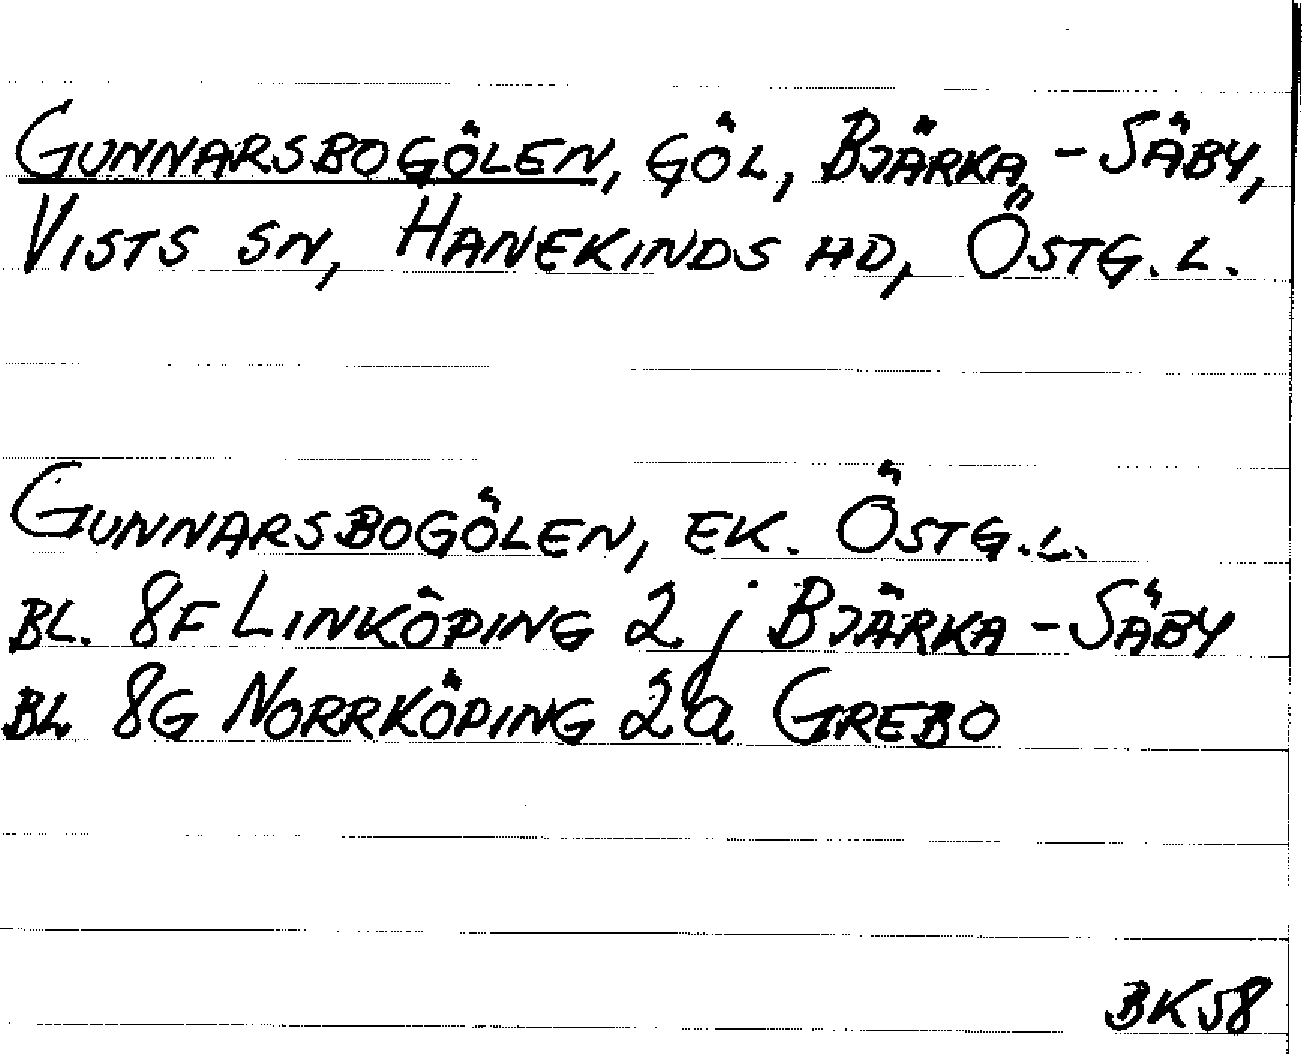 GUNNARSBOGÖLEN, GÖL, BJÄRKA-SÄBY,
VISTS SN, HANEKINDS HD, ÖSTG.L.
GUNNARSBOGÖLEN, EK. ÖSTG.L.
BL. 8F LINKÖPING 2j BJÄRKA-SÄBY
BL 8G NORRKÖPING 2a GREBO
BK58